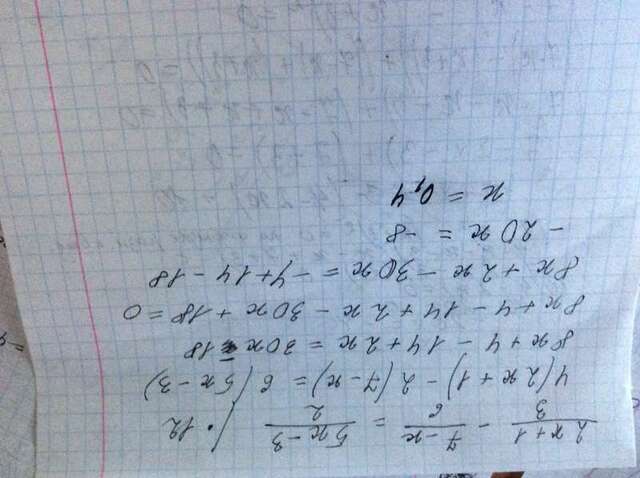 (2x+1)/3 - (7-x)/6 = (5x-3)/2 /·12
4(2x+1)-2(7-x)=6(5x-3)
8x+4-14+2x=30x-18
8x+4-14+2x-30x+18=0
8x+2x-30x=-4+14-18
-20x=-8
x=0,4